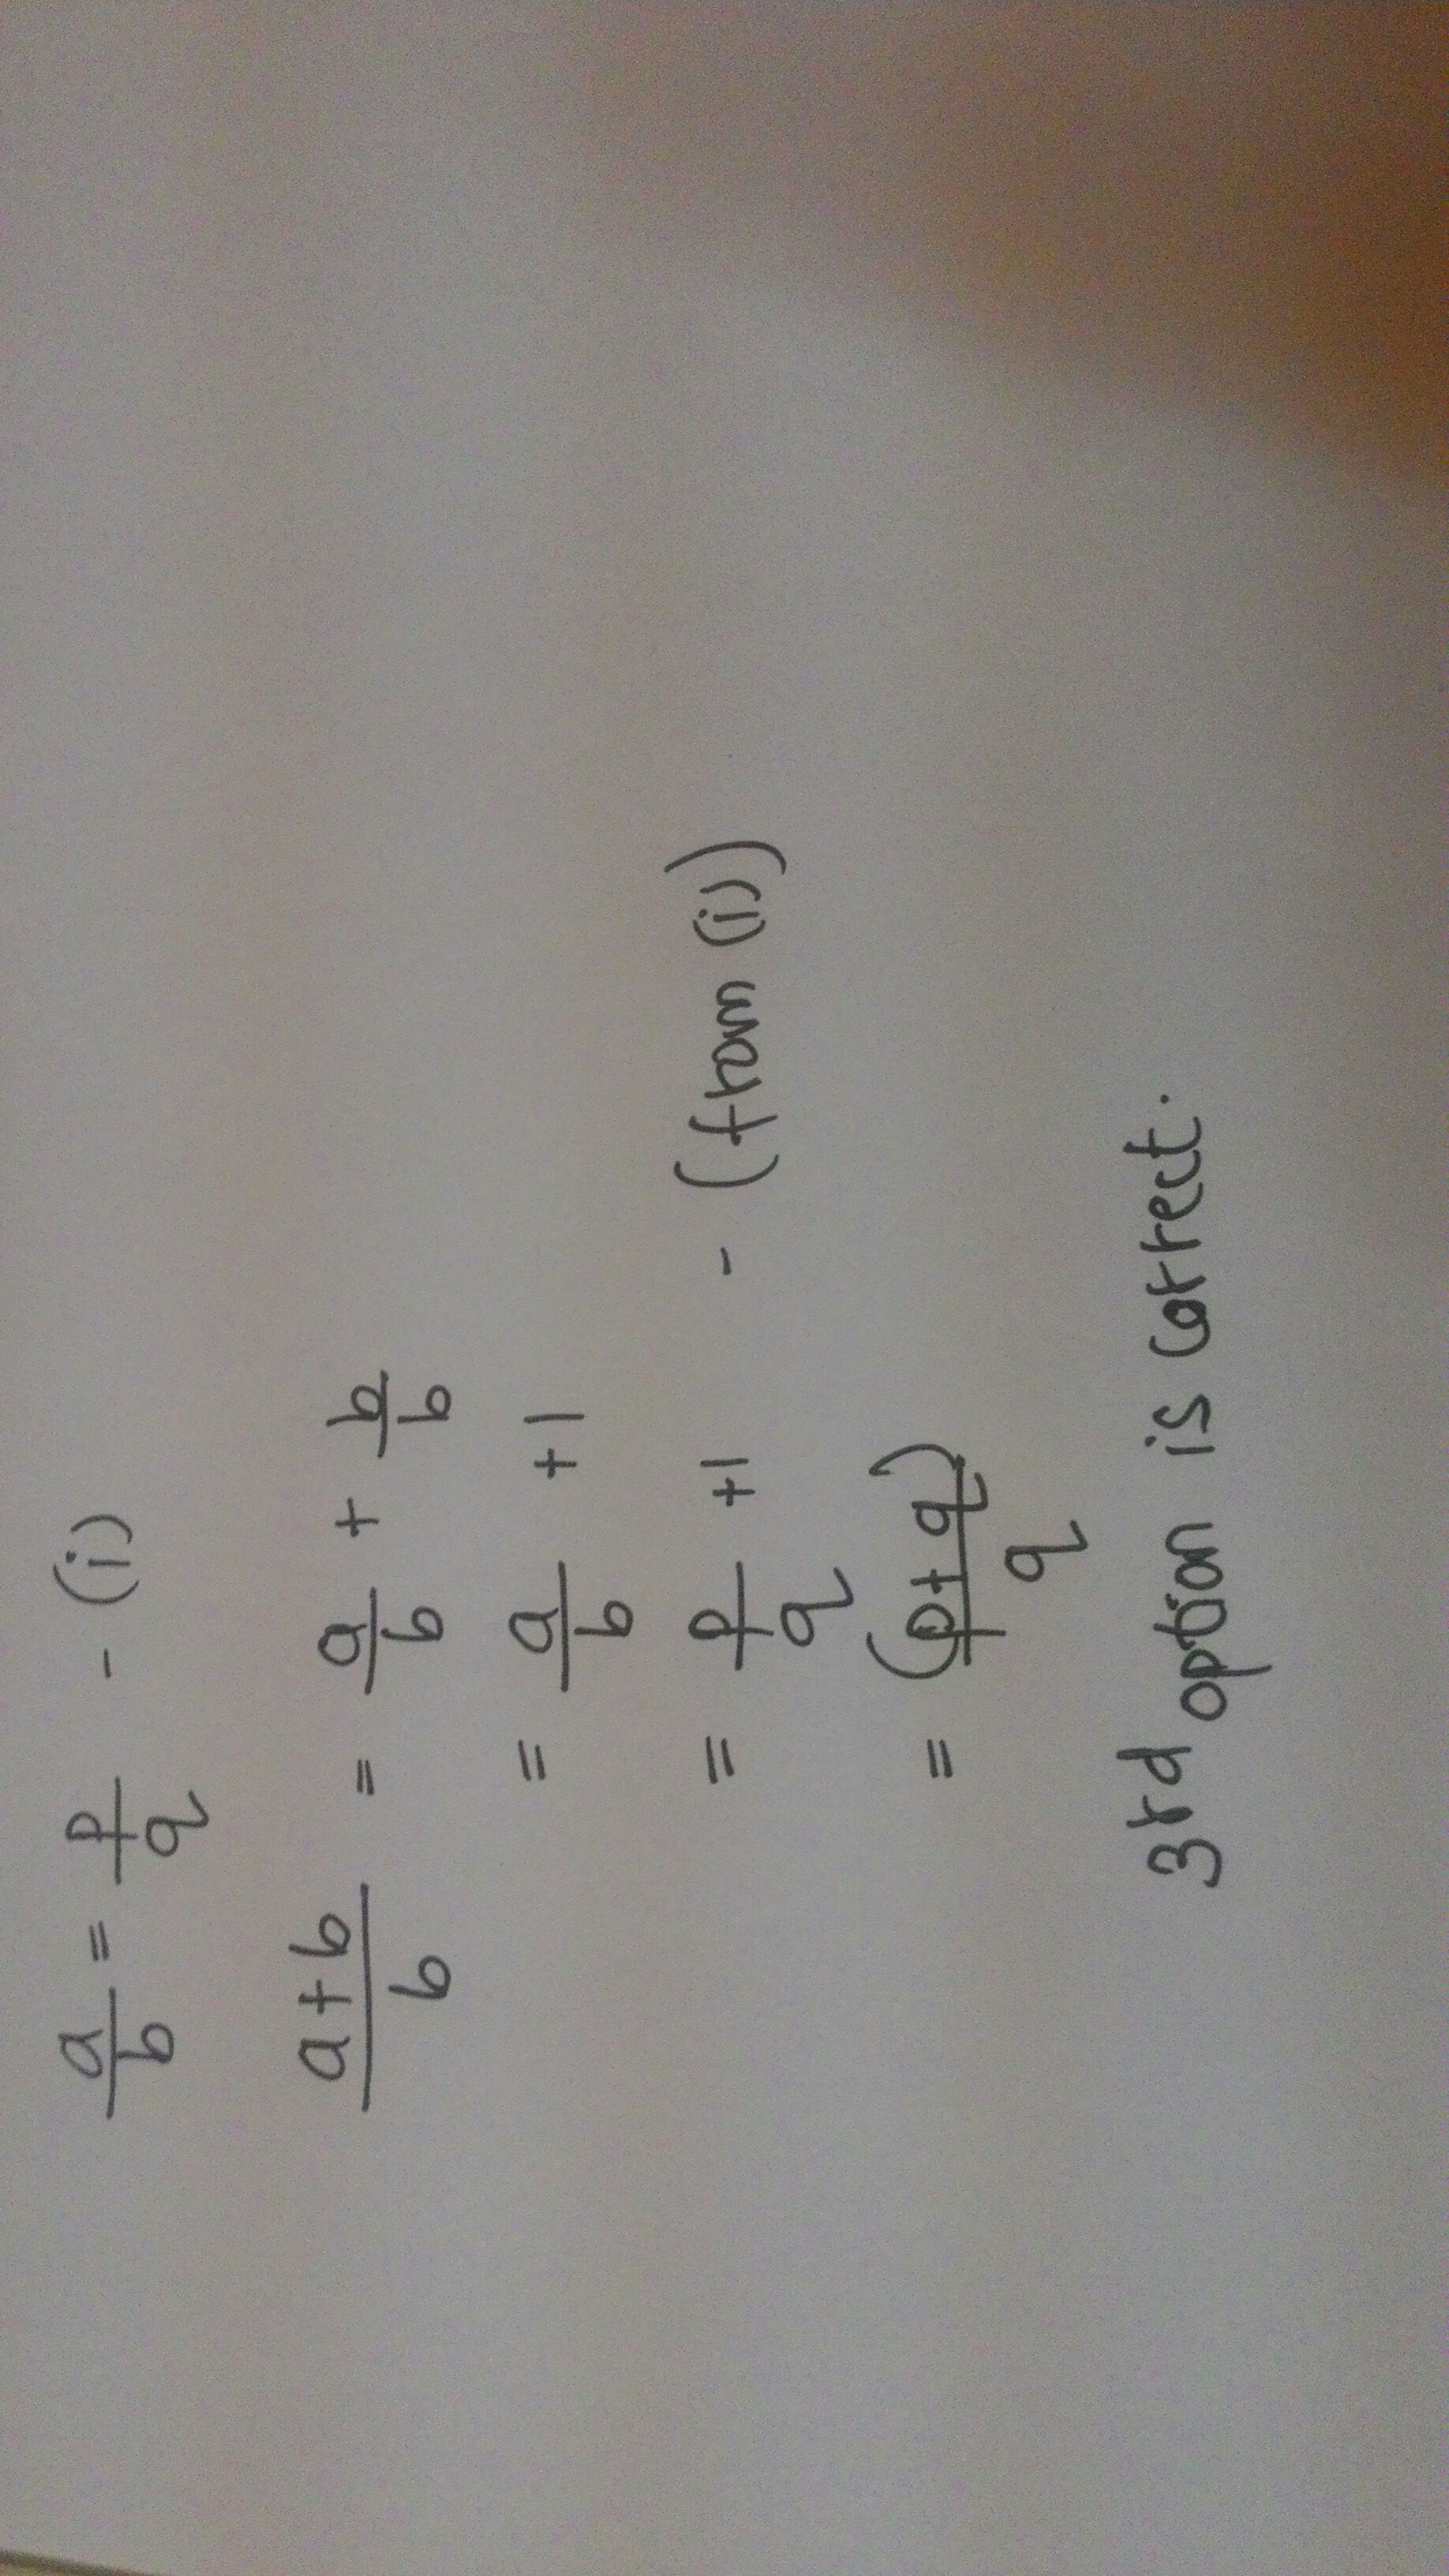 a/b = p/q - (i)
(a+b)/b = a/b + b/b
= a/b +1
= p/q +1 - (from (i))
= (p+q)/q
3rd option is correct.